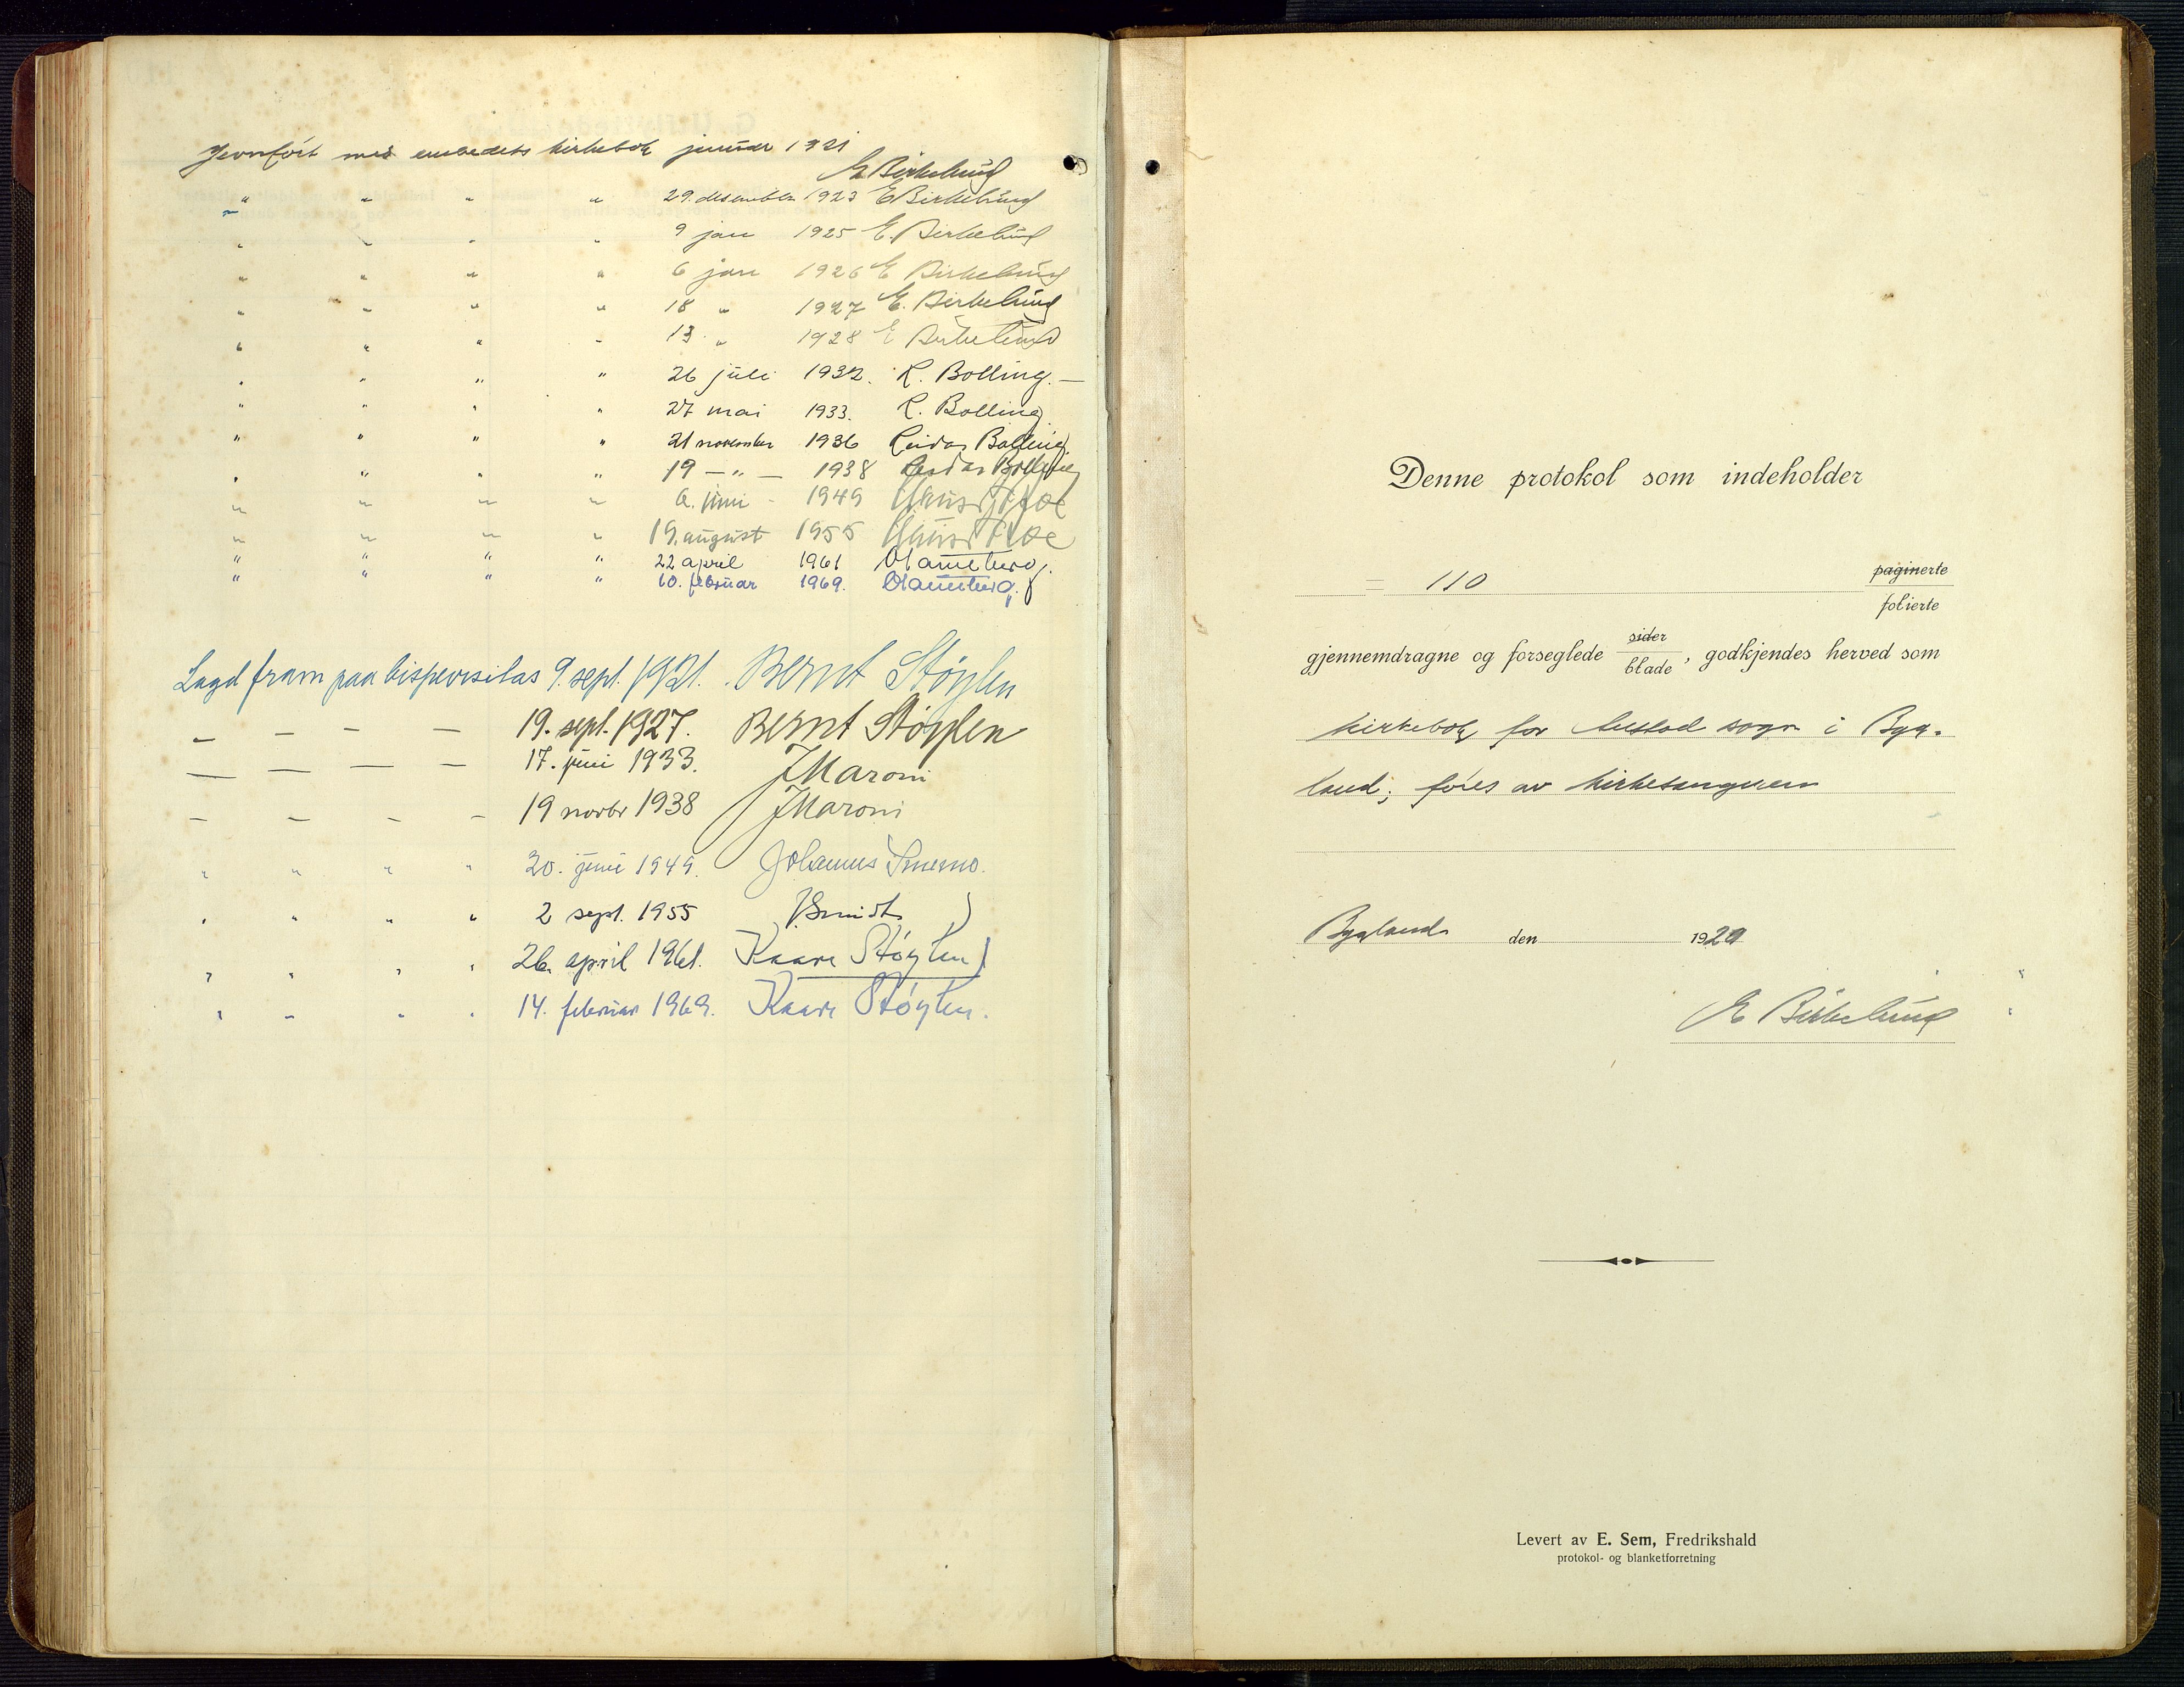 Jevnfört med embedets kirkebok januar 1921
E Birkelund
" " " " 29. desember 1923 E Birkelund
" " " " 9 jan 1925 E. Birkelund
" " " " 6 jan 1926 E Birkelund
" " " " 18 " 1927 E. Birkelund
" " " " 13. " 1928 E Birkelund
" " " " 26 juli 1932. R. Bolling. —
" " " " 27 mai 1933. R. Bolling
" " " " 21 november 1936 Reidar Bolling
" " " " 19 — " — 1938 Reidar Bolling
" " " " 6. juni - 1949
" " " " 19. august 1955
" " " " 22 april 1961
" " " " 10. februar 1969.
Lagd fram paa bispevisitas 9. sept. 1921. Bernt Støylen
— — — — 19. sept. 1927. Bernt Støylen
— — — — 17. juni 1933. J Maroni
— — — — 19 novbr 1938 J Maroni
" " " " 20. juni 1949. Johannes Smemo.
" " " " 2 sept. 1955 J Smidt
" " " " 26. april 1961. Kaare Støylen
" " " " 14. februar 1969. Kaare Støylen.
Denne protokol som indeholder
= 110 paginerte
folierte
gjennemdragne og forseglede sider
blade, godkjendes herved som
kirkebok for Austad sogn i Byg-
land; føres av kirkesangeren
Bygland den 1920
E Birkelund
Levert av E. Sem, Fredrikshald
protokol- og blanketforretning